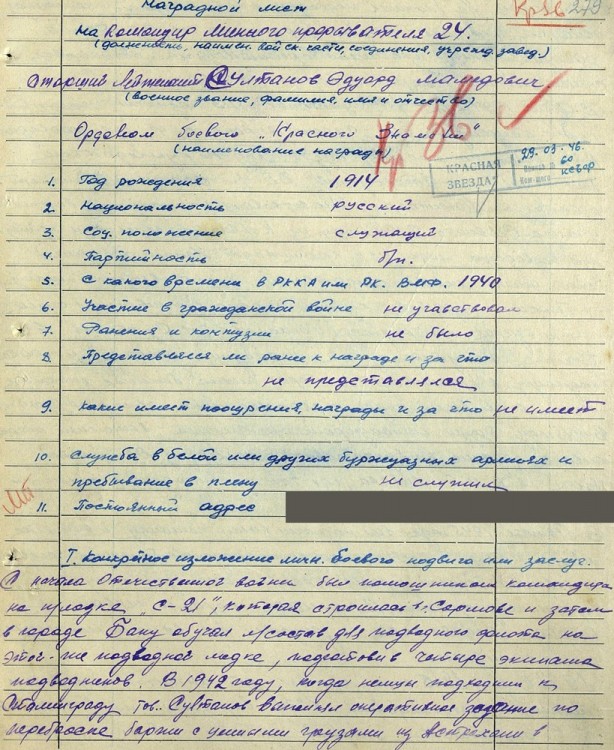 Наградной лист
Кр36 279
на Командир Минного подрывателя 24.
(должность, наимен. войск. части, соединения, учрежд. завед.)
Старший Лейтенант Султанов Эдуард Мамедович.
(военное звание, фамилия, имя и отчество)
Кр 36
Орденом боевого "Красного Знамени"
(наименование награды)
КРАСНАЯ ЗВЕЗДА
29.03.46.
60
1. Год рождения 1914
2. Национальность русский
3. Соц. положение служащий
4. Партийность б/п.
5. С какого времени в РККА или РК. ВМФ. 1940
6. Участие в гражданской войне не учавствовал
7. Ранения и контузии не было
8. Представлялся ли ранее к награде и за что
не представлялся
9. какие имеет поощрения, награды и за что не имеет
10. служба в белой или других буржуазных армиях и
пребывание в плену не служил
11. Постоянный адрес
I. Конкретное изложение личн. боевого подвига или заслуг.
С начала Отечественной войны был помощником командира
на п/лодке "С-21", которая строилась в г. Сормове и затем
в городе Баку обучал л/состав для подводного флота на
этой-же подводной лодке, подготовив четыре экипажа
подводников. В 1942 году, когда немцы подходили к
Сталинграду тов. Султанов выполнял оперативное задание по
переброске баржи с ценными грузами из Астрахани в